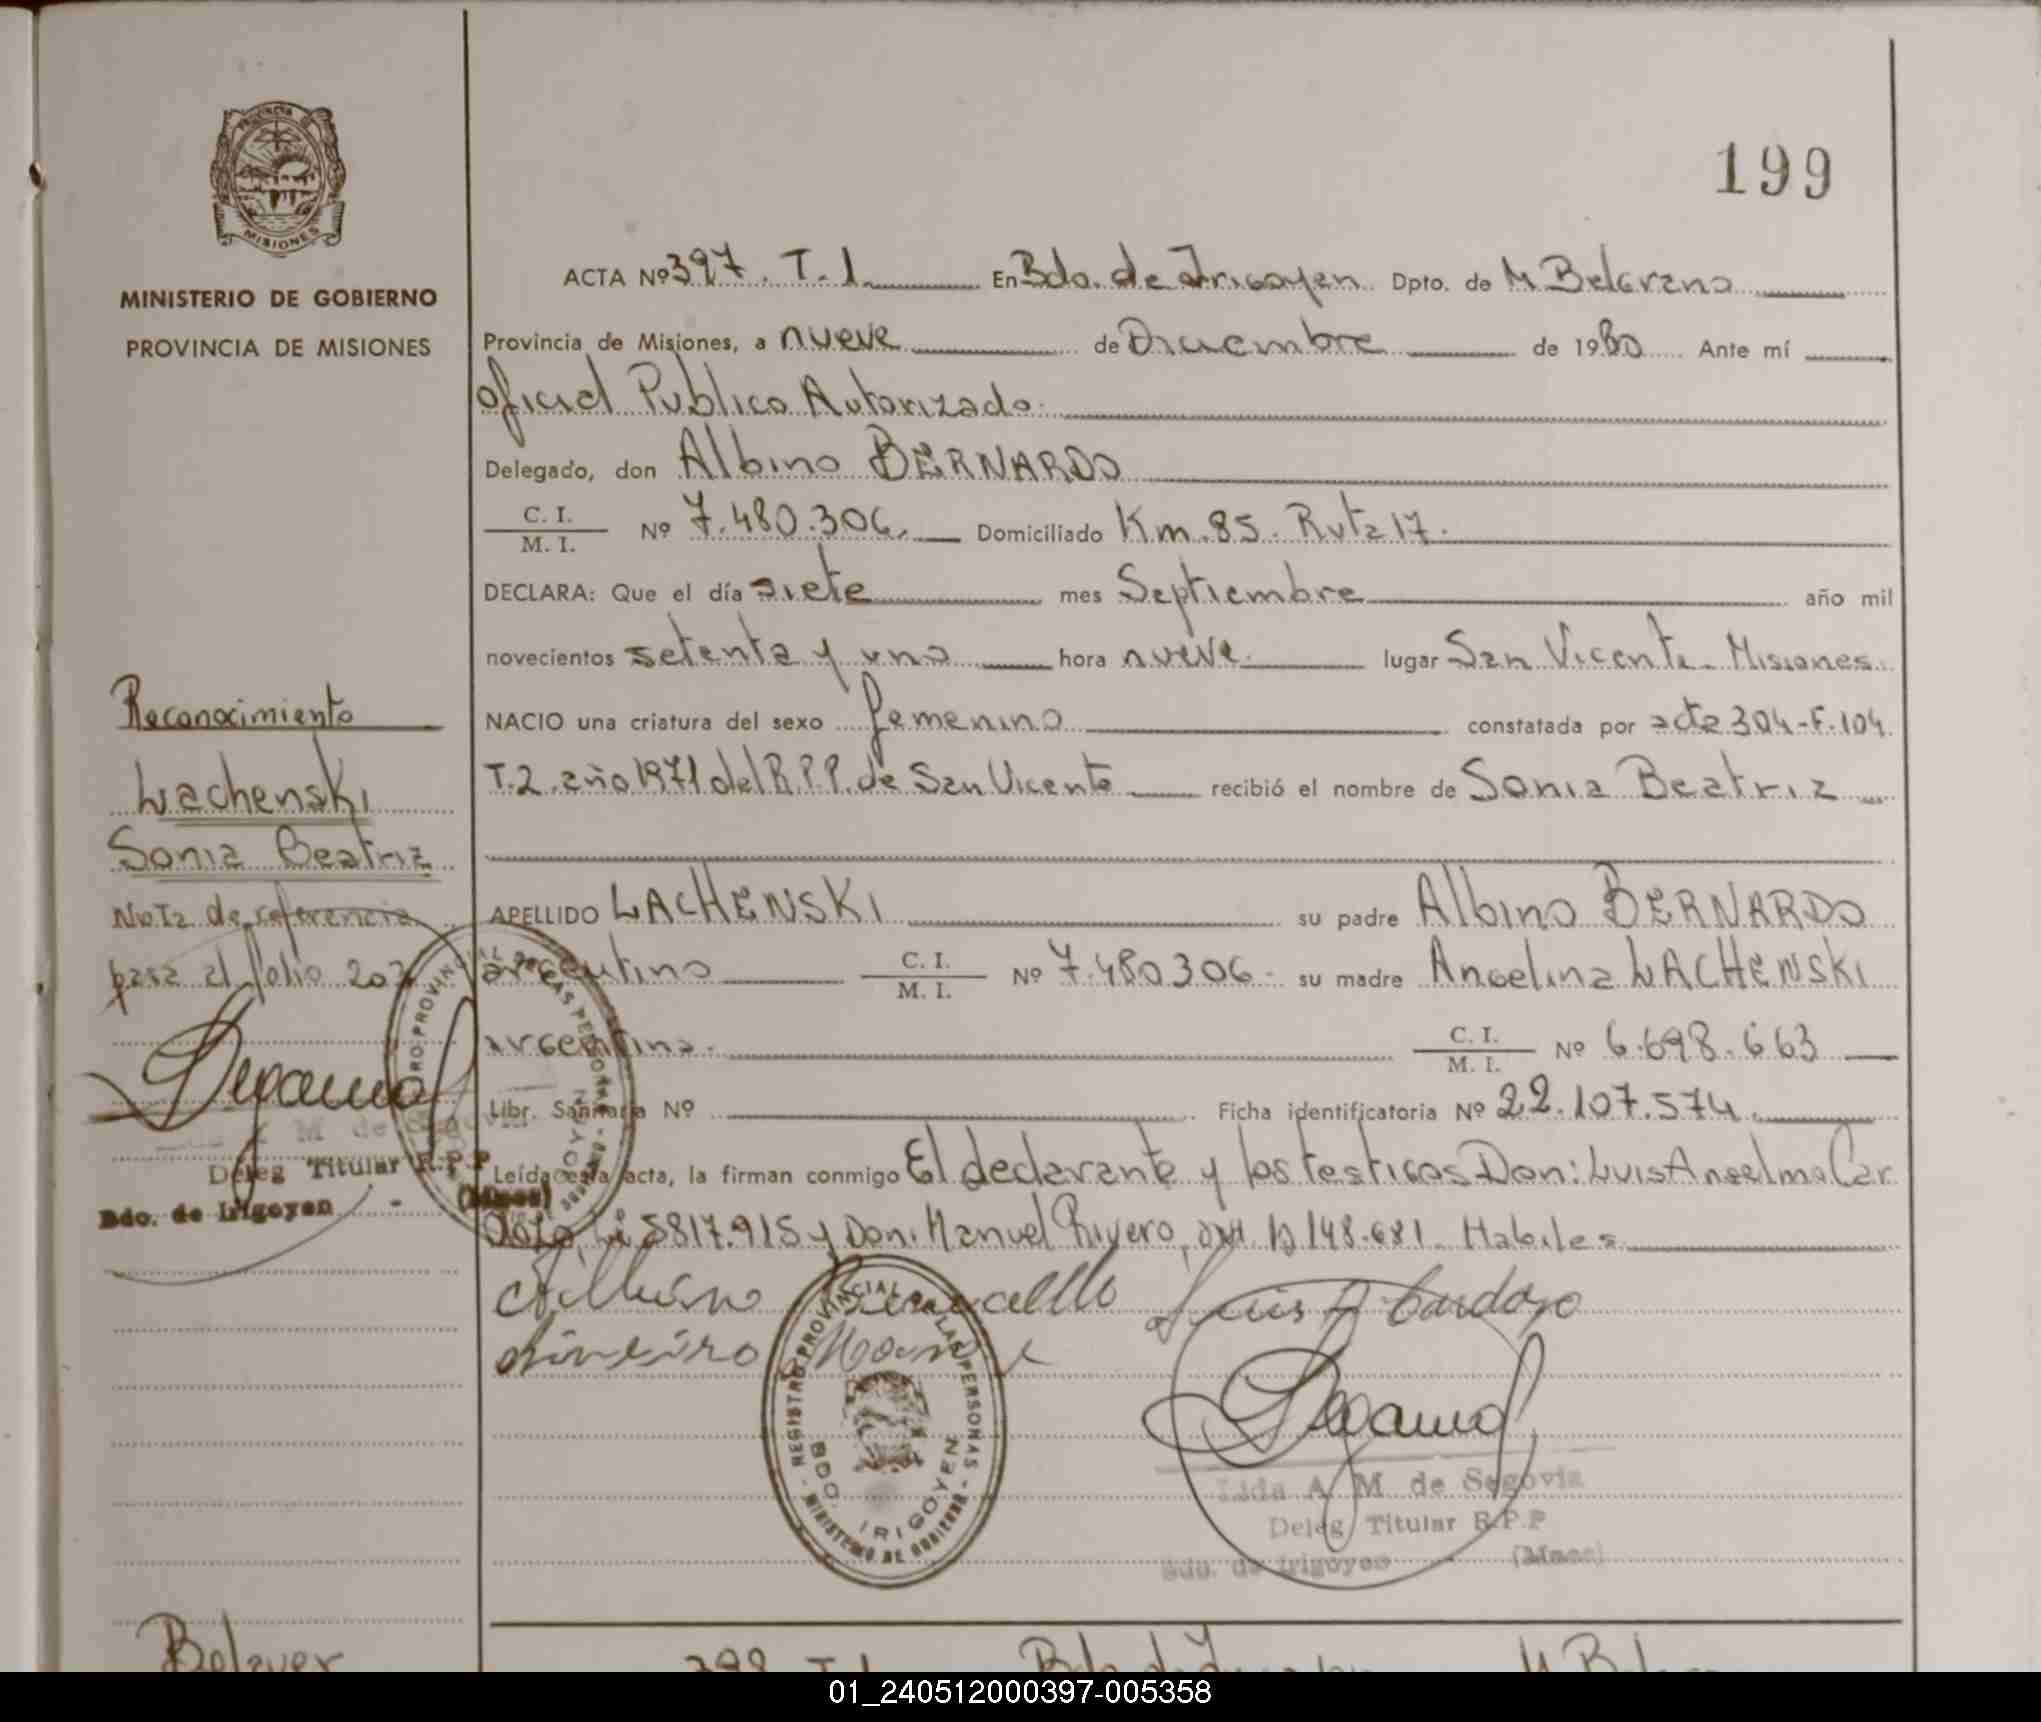 PROVINCIA DE
MISIONES
MINISTERIO DE GOBIERNO
PROVINCIA DE MISIONES
199
ACTA Nº 397. T. 1. En Bdo. de Irigoyen Dpto. de M Belgrano
Provincia de Misiones, a nueve de Diciembre de 1980 Ante mí
Oficial Publico Autorizado
Delegado, don Albino BERNARDO
C. I.
M. I. Nº 7.480.306. Domiciliado Km. 85. Ruta 17.
DECLARA: Que el día siete mes Septiembre año mil
novecientos setenta y uno hora nueve. lugar San Vicente. Misiones.
NACIO una criatura del sexo femenino constatada por acta 304-F.104.
T.2. año 1971 del R.P.P. de San Vicente recibió el nombre de Sonia Beatriz
APELLIDO LACHENSKI su padre Albino BERNARDO
argentino C. I.
M. I. Nº 7.480306. su madre Angelina LACHENSKI
argentina. C. I.
M. I. Nº 6.698.663
Libr. Sanitaria Nº Ficha identificatoria Nº 22.107.574.
Leída esta acta, la firman conmigo El declarante y los testigos Don: Luis Anselmo Car
dozo, 5817.915 y Don. Manuel Rivero, 148.681. Habiles
Luis A Cardozo
REGISTRO PROVINCIAL DE LAS PERSONAS - MINISTERIO DE GOBIERNO -
BDO. IRIGOYEN
Lida A. M de Segovia
Deleg Titular R.P.P
Bdo. de Irigoyen - (Mnes)
Reconocimiento
Lachenski
Sonia Beatriz
Nota de referencia
pasa al folio
M de Segovia
Deleg Titular R.P.P
Bdo. de Irigoyen - (Mnes)
398 T. 1
01_240512000397-005358